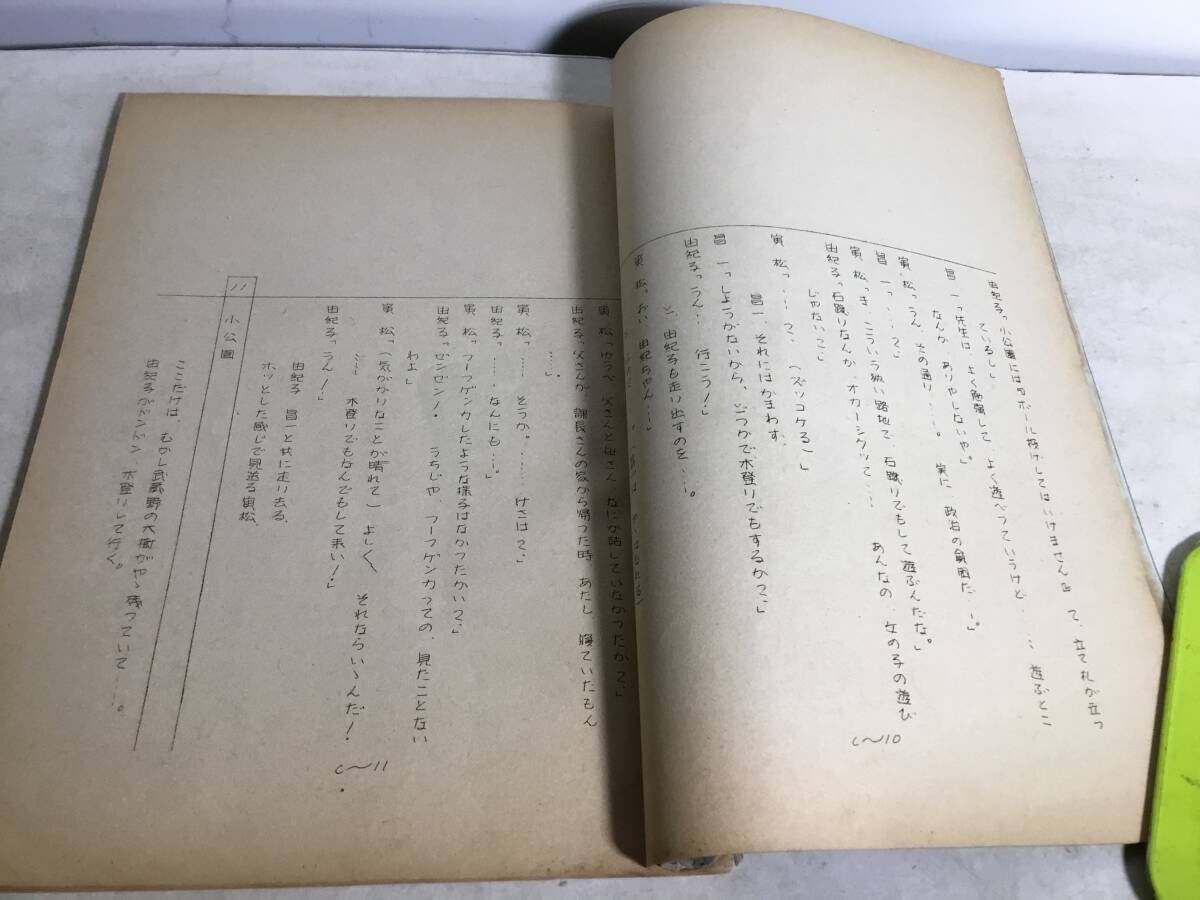 由紀子「『小公園にはボール投げしてはいけません』て、立て札が立っ
ているし」
昌一「先生は、よく勉強して、よく遊べっていうけど……遊ぶとこ
なんか、ありやしないや。」
寅松「うん、その通り……。実に、政治の貧困だ…。」
昌一「……?」
寅松「き、こういう狭い路地で、石蹴りでもして遊ぶんだな。」
由紀子「石蹴りなんか、オカーシクッて……あんなの、女の子の遊び
じゃない?」
c〜10
寅松「……?、(ズッコケる)」
昌一、それにはかまわず、
昌一「しょうがないから、どっかで木登りでもするか?」
由紀子「うん…行こう!」
と、由紀子も走り出すのを……。
寅松「おい、由紀ちゃん…!」
寅松「ゆうべ、父さんと母さん、なにか話していなかったか?」
由紀子「父さんが、課長さんの家から帰った時、あたし、寝ていたもん
…」
寅松「……そうか。……けさは?」
由紀子「……なんにも…」
寅松「フーフゲンカしたような様子はなかったかい?」
由紀子「ゼンゼン!、うちじゃ、フーフゲンカっての、見たことない
わよ」
c〜11
寅松「(気がかりなことが晴れて)よしよし、それならいゝんだ!
……木登りでもなんでもして来い!」
由紀子「うん!」
由紀子、昌一と共に走り去る、
ホッとした感じで見送る寅松、
11 小公園
ここだけは、むかし武蔵野の大樹がやゝ残っていて……。
由紀子がドンドン、木登りして行く。